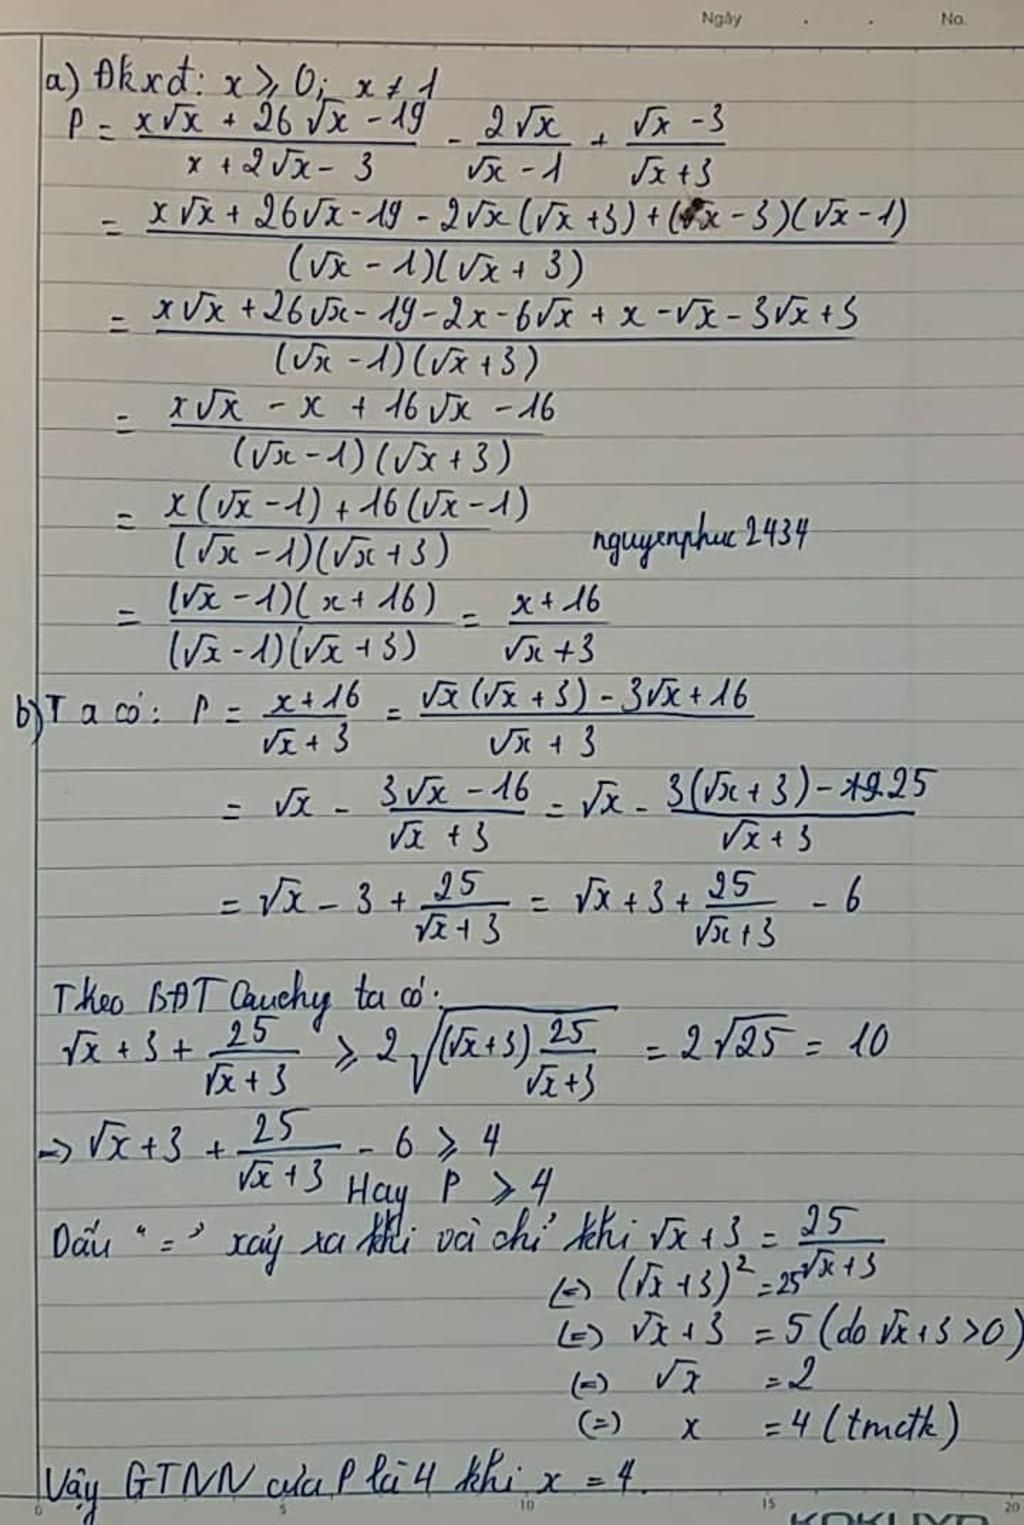 Ngày . . No.
a) Đkxđ: x ⩾ 0; x ≠ 1
P = (x√x + 26√x - 19)/(x + 2√x - 3) - (2√x)/(√x - 1) + (√x - 3)/(√x + 3)
= (x√x + 26√x - 19 - 2√x(√x + 3) + (√x - 3)(√x - 1))/((√x - 1)(√x + 3))
= (x√x + 26√x - 19 - 2x - 6√x + x - √x - 3√x + 3)/((√x - 1)(√x + 3))
= (x√x - x + 16√x - 16)/((√x - 1)(√x + 3))
= (x(√x - 1) + 16(√x - 1))/((√x - 1)(√x + 3))
nguyenphuc2434
= ((√x - 1)(x + 16))/((√x - 1)(√x + 3)) = (x + 16)/(√x + 3)
b) Ta có: P = (x + 16)/(√x + 3) = (√x(√x + 3) - 3√x + 16)/(√x + 3)
= √x - (3√x - 16)/(√x + 3) = √x - (3(√x + 3) - 25)/(√x + 3)
= √x - 3 + 25/(√x + 3) = √x + 3 + 25/(√x + 3) - 6
Theo BĐT Cauchy ta có:
√x + 3 + 25/(√x + 3) ⩾ 2√((√x + 3) 25/(√x + 3)) = 2√25 = 10
=> √x + 3 + 25/(√x + 3) - 6 ⩾ 4
Hay P ⩾ 4
Dấu "=" xảy ra khi và chỉ khi √x + 3 = 25/(√x + 3)
(=) (√x + 3)² = 25
(=) √x + 3 = 5 (do √x + 3 > 0)
(=) √x = 2
(=) x = 4 (tmđk)
Vậy GTNN của P là 4 khi x = 4.
0 5 10 15 20
KOKUYO